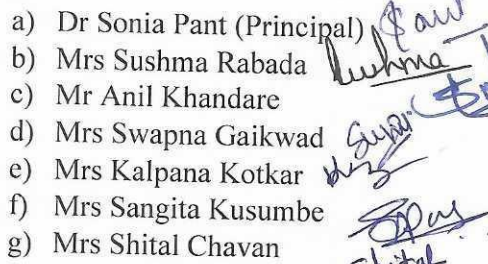 a) Dr Sonia Pant (Principal)
b) Mrs Sushma Rabada
c) Mr Anil Khandare
d) Mrs Swapna Gaikwad
e) Mrs Kalpana Kotkar
f) Mrs Sangita Kusumbe
g) Mrs Shital Chavan